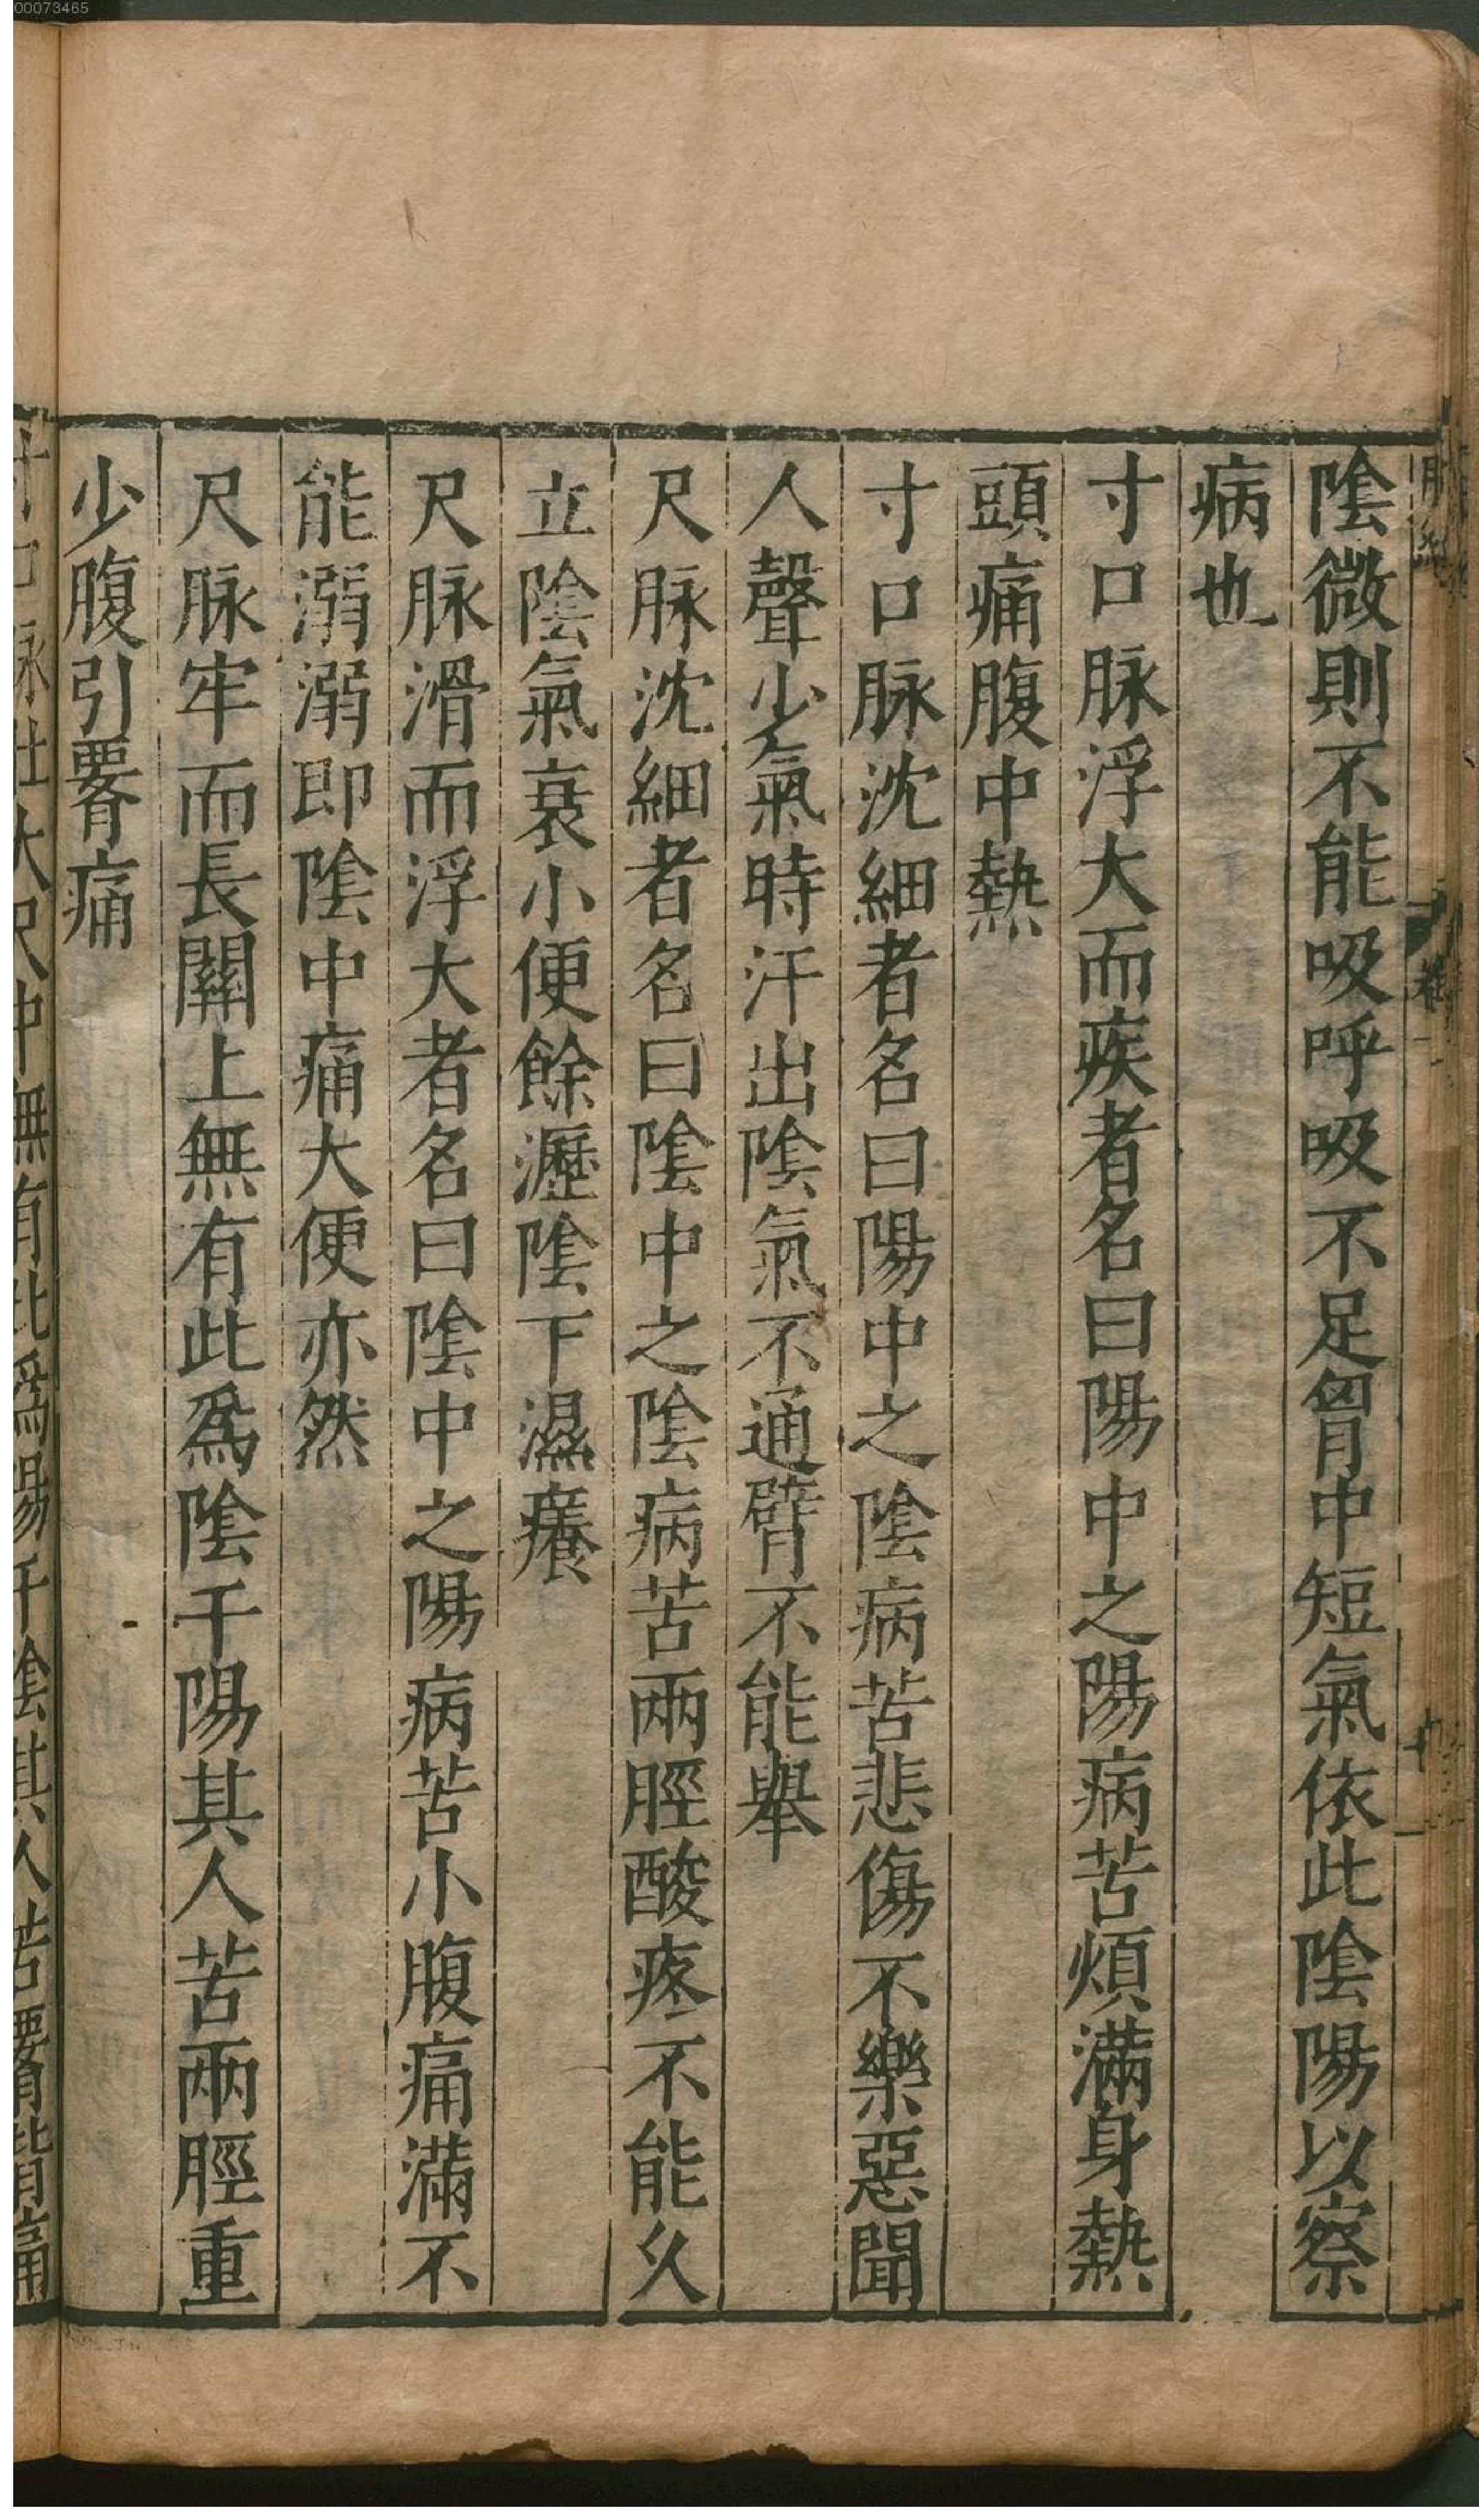 00073465
陰微則不能吸呼吸不足胷中短氣依此陰陽以察
病也
寸口脉浮大而疾者名曰陽中之陽病苦煩滿身熱
頭痛腹中熱
寸口脉沈細者名曰陽中之陰病苦悲傷不樂惡聞
人聲少氣時汗出陰氣不通臂不能舉
尺脉沈細者名曰陰中之陰病苦兩脛酸疼不能久
立陰氣衰小便餘瀝陰下濕癢
尺脉滑而浮大者名曰陰中之陽病苦小腹痛滿不
能溺溺即陰中痛大便亦然
尺脉牢而長關上無有此爲陰干陽其人苦兩脛重
少腹引腰痛
寸口脉壯大尺中無有此爲陽干陰其人苦腰背痛